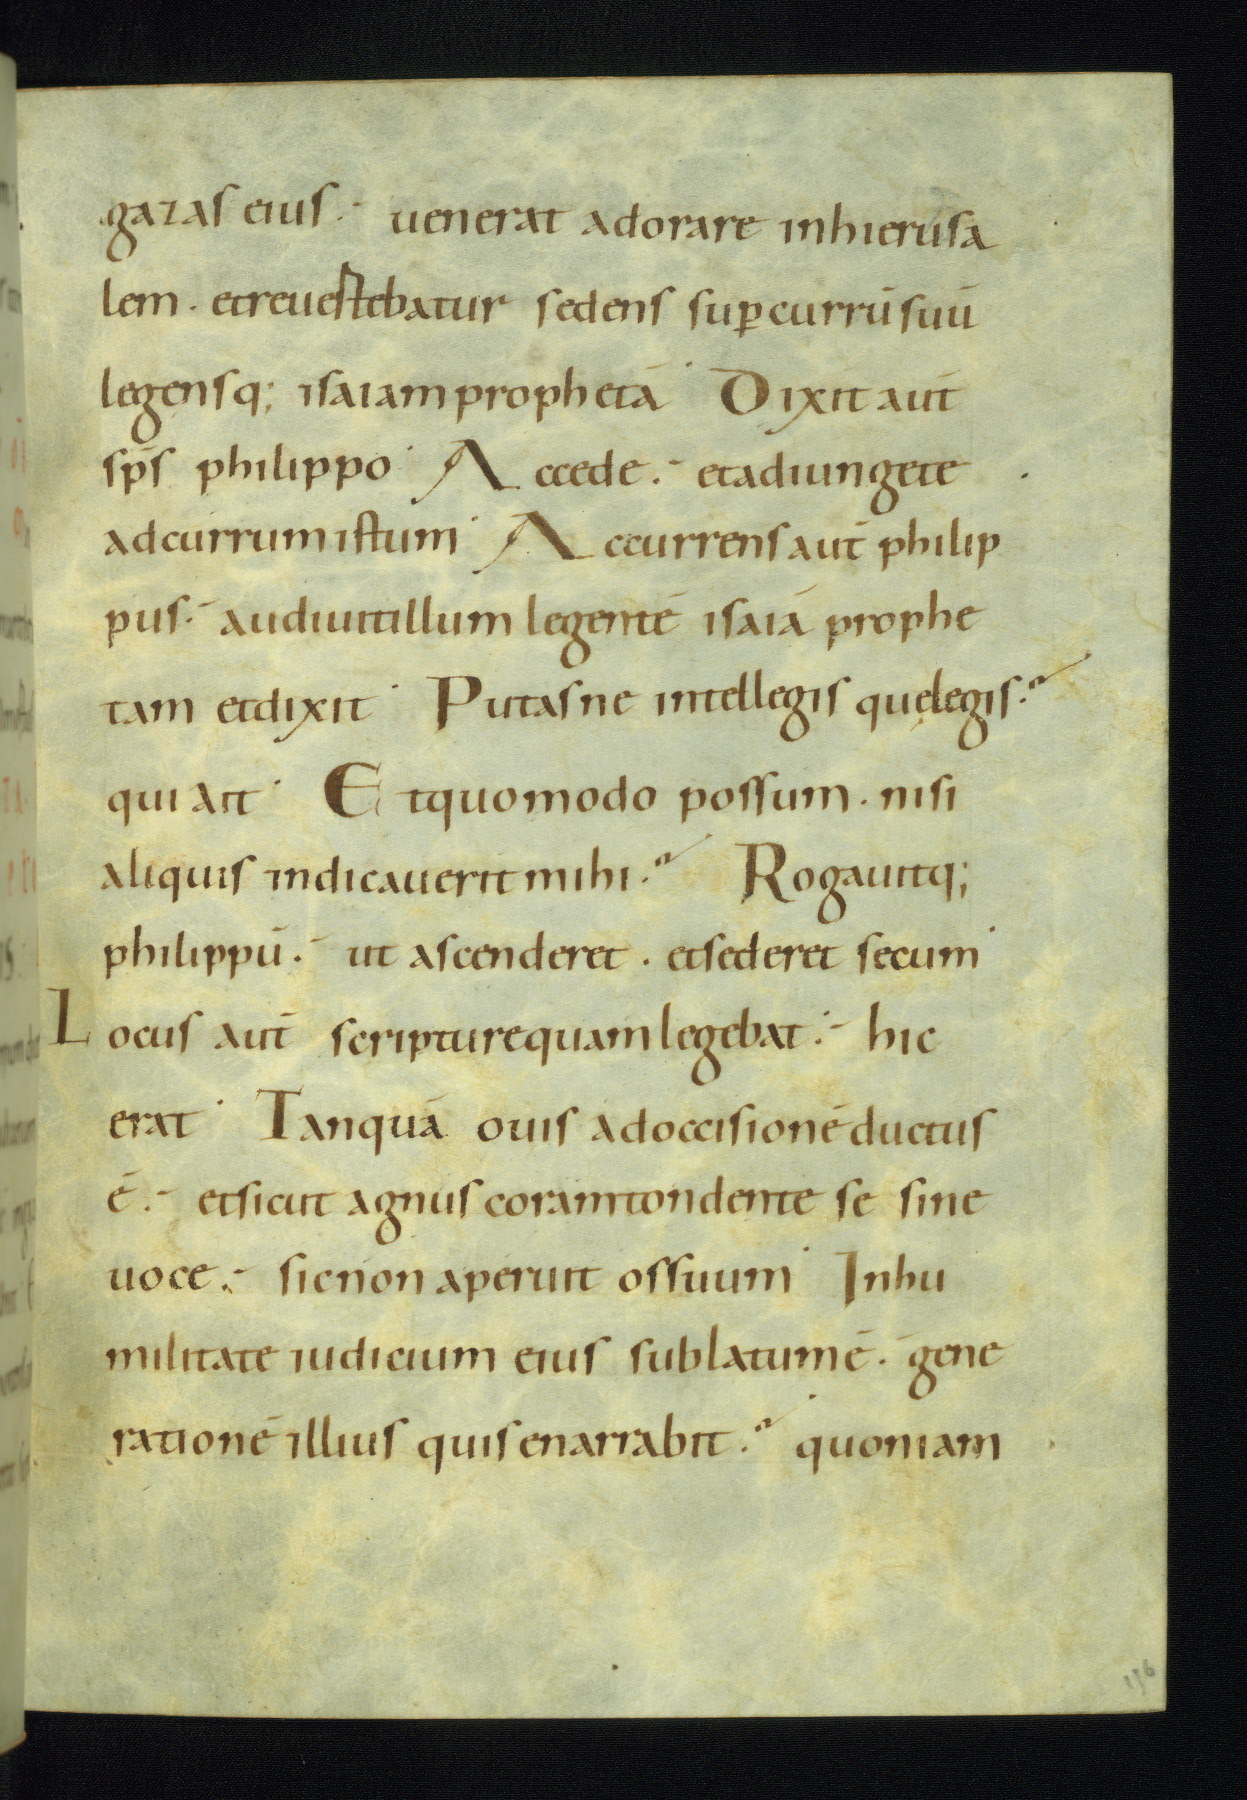 gazas eius. uenerat adorare inhierusa
lem. etreuertebatur sedens sup̄ currū suū
legensq; isaiam prophetā. Dixit aut̄
sp̄s philippo. Accede. etadiungete
adcurrum istum. Accurrens aut̄ philip
pus. audiuitillum legentē isaiā prophe
tam etdixit. Putasne intellegis quę legis.
qui ait. Et quomodo possum. nisi
aliquis indicauerit mihi. Rogauitq;
philippū. ut ascenderet. etsederet secum.
Locus aut̄ scripture quam legebat. hic
erat. Tanquā ouis adoccisionē ductus
ē. etsicut agnus coram tondente se sine
uoce. sic non aperuit os suum. Inhu
militate iudicium eius sublatum ē. gene
rationē illius quis enarrabit. quoniam
116